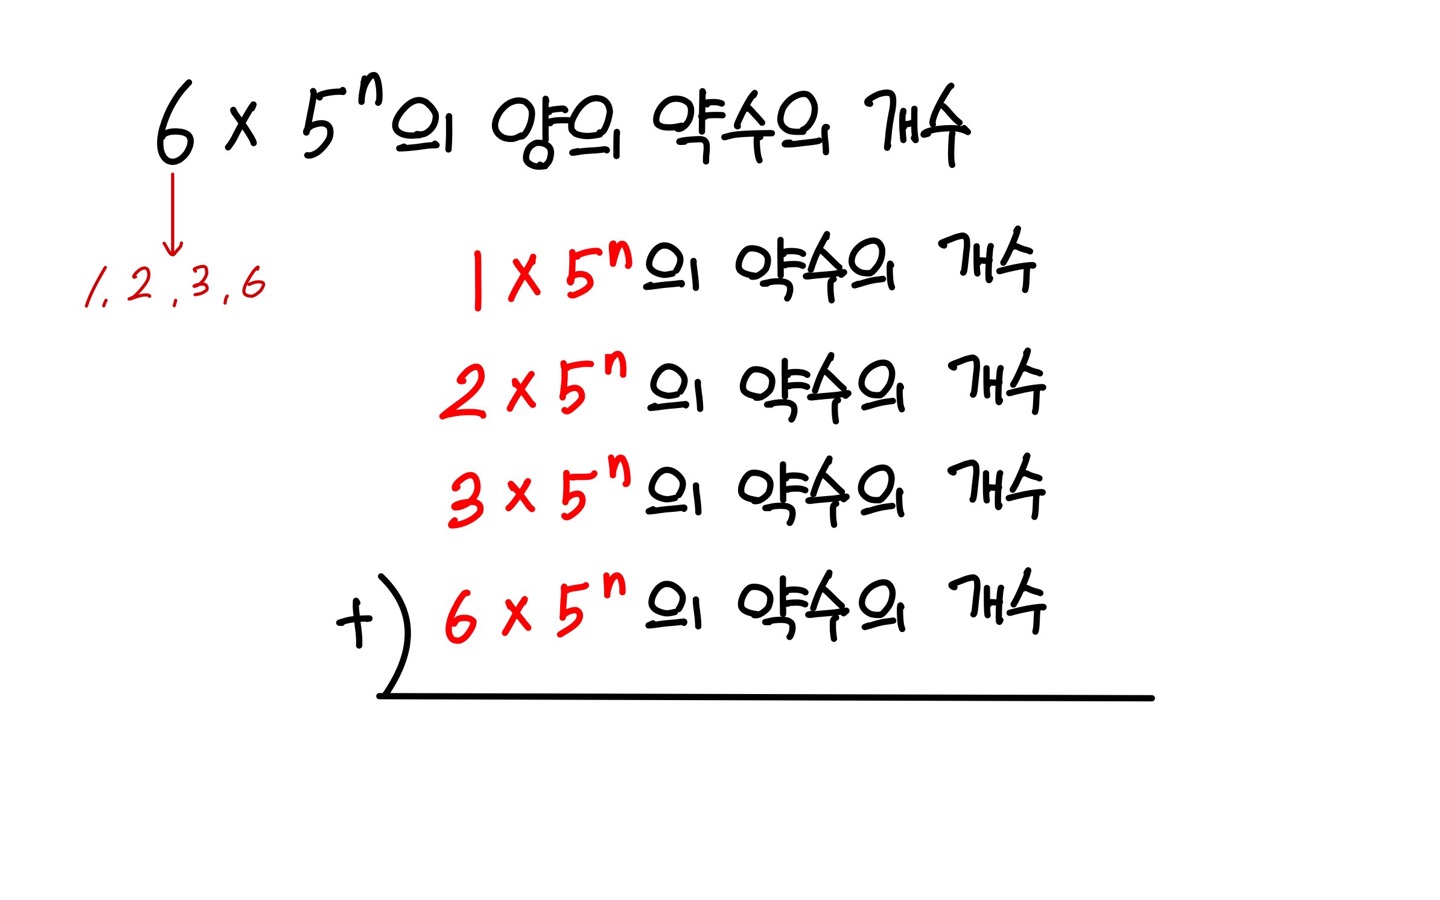 6 × 5ⁿ의 양의 약수의 개수
1, 2, 3, 6
1 × 5ⁿ의 약수의 개수
2 × 5ⁿ의 약수의 개수
3 × 5ⁿ의 약수의 개수
+) 6 × 5ⁿ의 약수의 개수